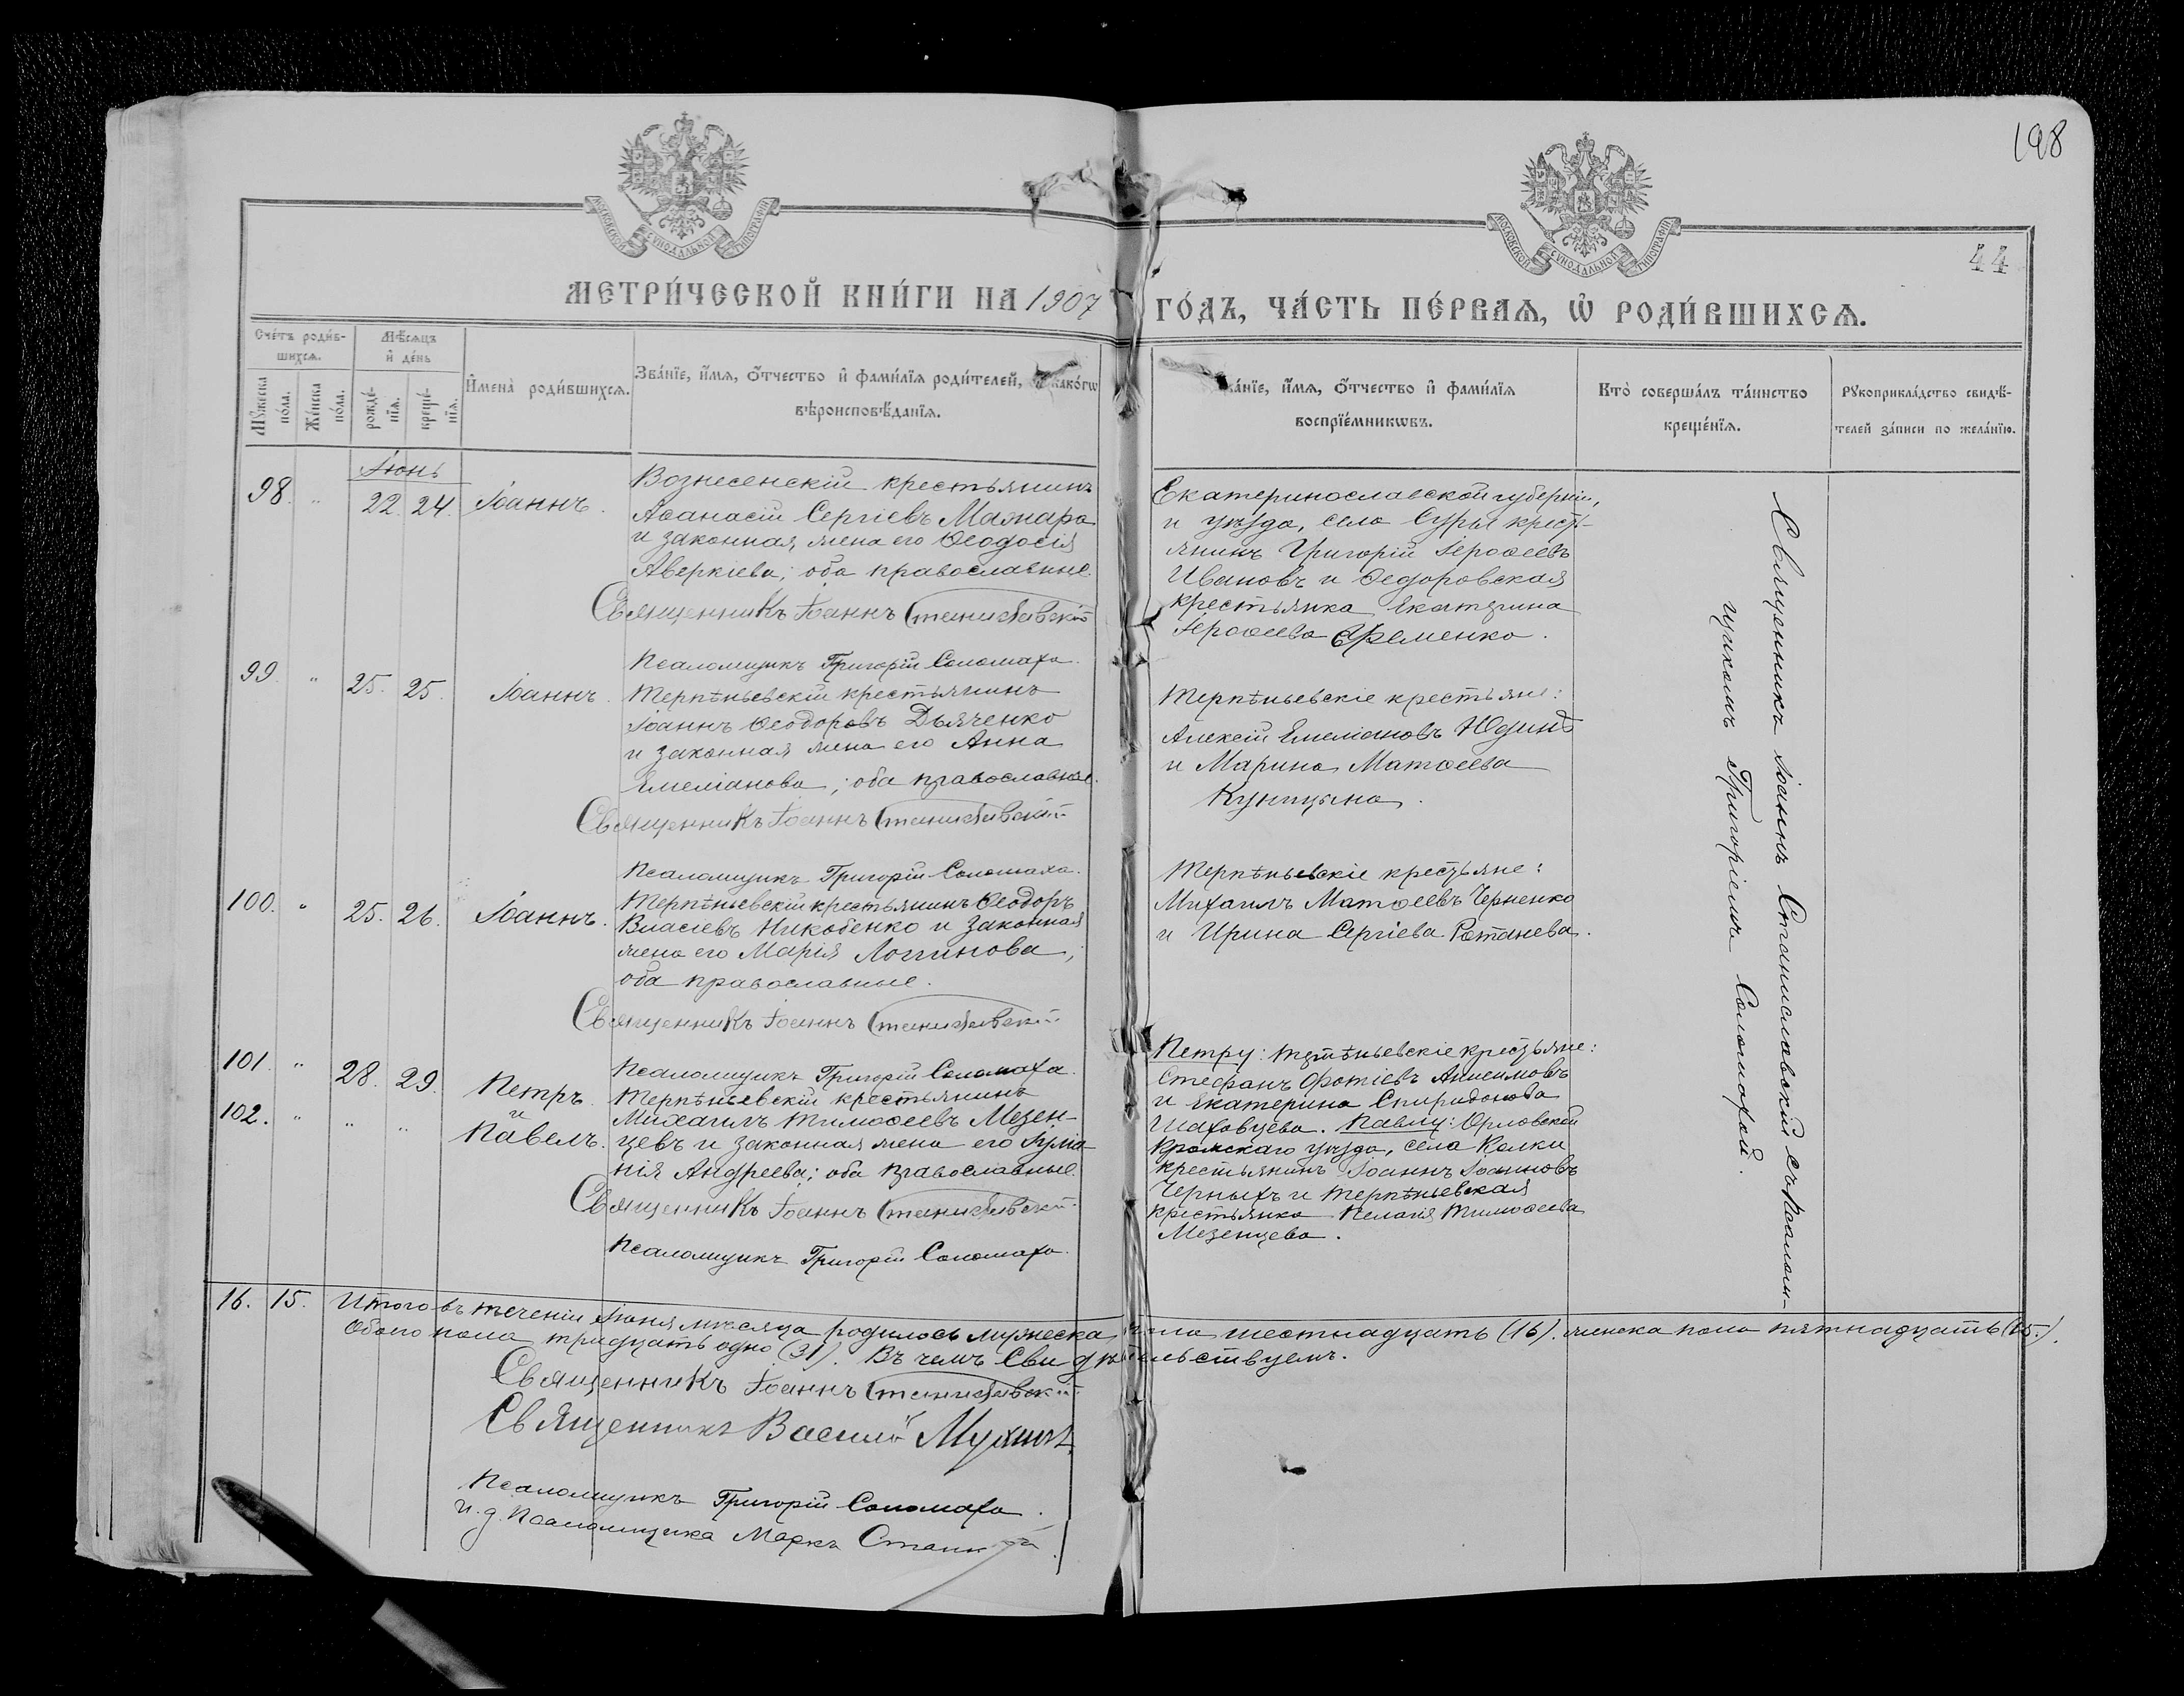 198
44
МОСКОВСКОЙ СѴНОДАЛЬНОЙ ТИПОГРАФІИ
МОСКОВСКОЙ СѴНОДАЛЬНОЙ ТИПОГРАФІИ
МЕТРИ́ЧЕСКОЙ КНИ́ГИ НА 1907 ГО́ДЪ, ЧА́СТЬ ПЕ́РВАѦ, Ѡ҆ РОДИ́ВШИХСѦ.
Сче́тъ роди́в-
шихсѧ.
Мꙋ́жеска по́ла.
Же́нска по́ла.
Мѣ́сѧцъ
и҆ де́нь
рожде́-
нїѧ.
креще́-
нїѧ.
И҆мена̀ роди́вшихсѧ.
Зва́нїе, и҆́мѧ, ѻ҆́тчество и҆ фами́лїѧ роди́телей, како́гѡ
вѣроисповѣ́данїѧ.
ва́нїе, и҆́мѧ, ѻ҆́тчество и҆ фами́лїѧ
воспрїе́мникѡвъ.
Кто̀ соверша́лъ та́инство
креще́нїѧ.
Рꙋкоприкла́дство свидѣ́-
телей за́писи по жела́нїю.
Іюнь
98. " 22. 24. Іоаннъ.
Вознесенскій крестьянинъ
Аѳанасій Сергіевъ Мажара
и законная жена его Ѳеодосія
Аверкіева; оба православные.
Священникъ Іоаннъ Станиславскій
Псаломщикъ Григорій Соломаха.
Екатеринославской губерніи,
и уѣзда, села Сурья кресть-
янинъ Григорій Іероѳеевъ
Ивановъ и Ѳедоровская
крестьянка Екатерина
Іероѳеева Яременко.
99. " 25. 25. Іоаннъ.
Терпѣньевскій крестьянинъ
Іоаннъ Ѳеодоровъ Дьяченко
и законная жена его Анна
Емеліанова; оба православные.
Священникъ Іоаннъ Станиславскій
Псаломщикъ Григорій Соломаха.
Терпѣньевскіе крестьяне:
Алексій Емеліановъ Юдинъ
и Марина Матѳеева
Куницына.
100. " 25. 26. Іоаннъ.
Терпѣньевскій крестьянинъ Ѳеодоръ
Власіевъ Никобенко и законная
жена его Марія Логгинова;
оба православные.
Священникъ Іоаннъ Станиславскій
Псаломщикъ Григорій Соломаха.
Терпѣньевскіе крестьяне:
Михаилъ Матѳеевъ Черненко
и Ирина Сергіева Ротанева.
101. " 28. 29. Петръ
и
102. " " " Павелъ.
Терпѣньевскій крестьянинъ
Михаилъ Тимоѳеевъ Мезен-
цевъ и законная жена его Іулiа-
нія Андреева; оба православные.
Священникъ Іоаннъ Станиславскій
Псаломщикъ Григорій Соломаха.
Петру: Терпѣньевскіе крестьяне:
Стефанъ Фотіевъ Анисимовъ
и Екатерина Спиридонова
Шаховцева. Павлу: Орловской
Кромскаго уѣзда, села Колки
крестьянинъ Іоаннъ Іоанновъ
Черныхъ и Терпѣньевская
крестьянка Пелагія Тимоѳеева
Мезенцева.
Священникъ Іоаннъ Станиславскій съ псалом-
щикомъ Григоріемъ Соломахой.
16. 15. Итого въ теченіи Іюня мѣсяца родилось мужеска пола шестнадцать (16). женска пола пятнадцать (15.).
Обоего пола тридцать одно (31). Въ чемъ свидѣтельствуемъ.
Священникъ Іоаннъ Станиславскій
Священникъ Василій Мухинъ
Псаломщикъ Григорій Соломаха.
И. д. псаломщика Маркъ